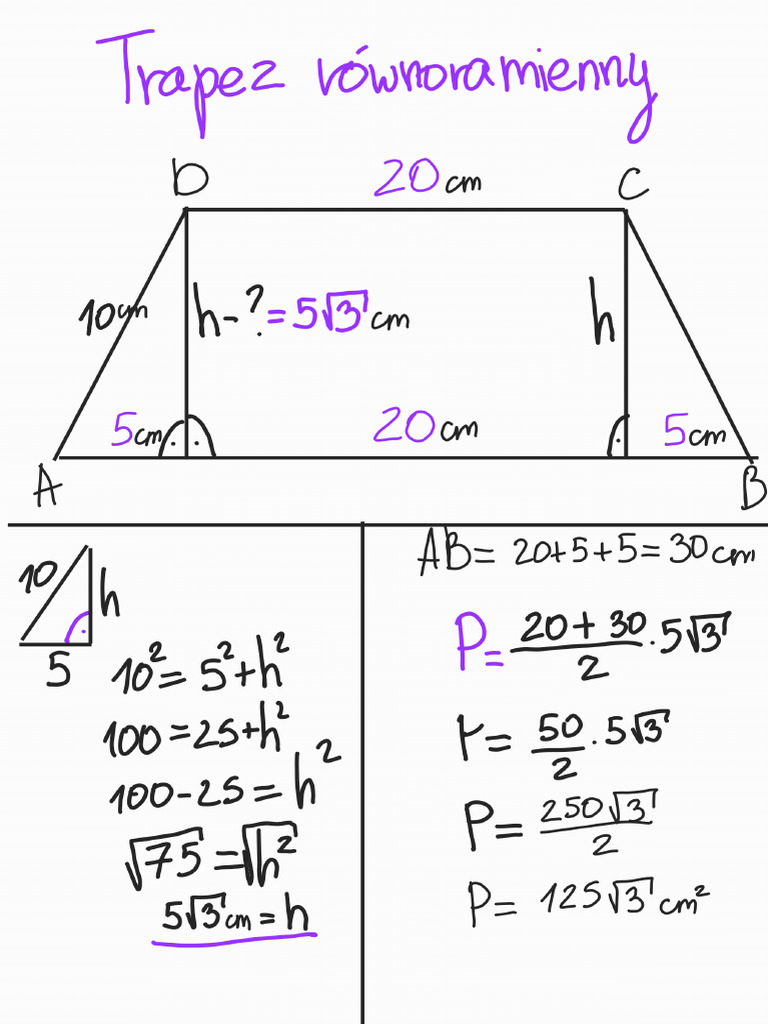 Trapez równoramienny
D 20 cm C
10 cm h - ? = 5√3 cm h
5 cm 20 cm 5 cm
A B
10 h
5
10² = 5² + h²
100 = 25 + h²
100 - 25 = h²
√75 = √h²
5√3 cm = h
AB = 20 + 5 + 5 = 30 cm
P = (20 + 30)/2 · 5√3
P = 50/2 · 5√3
P = 250√3/2
P = 125√3 cm²